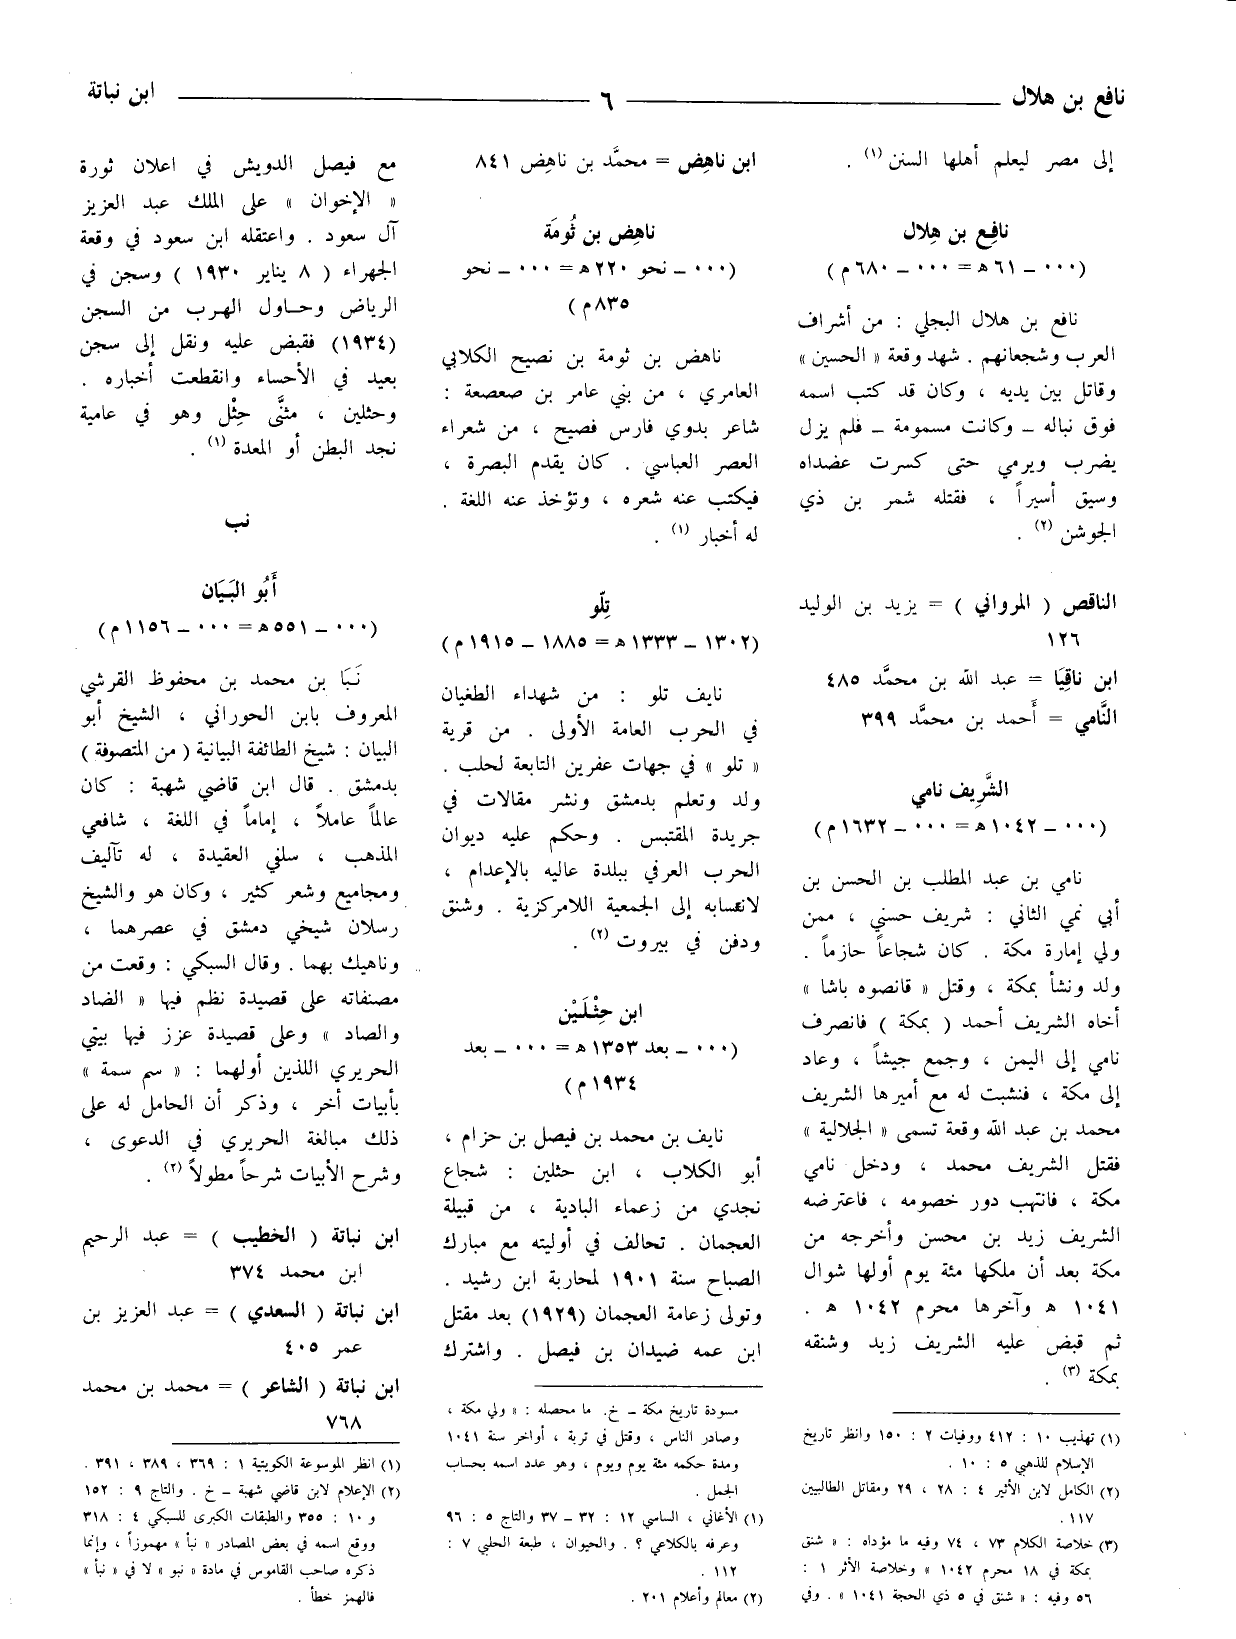 نافع بن هلال ٦ ابن نباتة
إلى مصر ليعلم أهلها السنن (١) .
نافِع بن هِلال
(٠٠٠ ــ ٦١ هـ = ٠٠٠ ــ ٦٨٠ م)
نافع بن هلال البجلي : من أشراف
العرب وشجعانهم . شهد وقعة « الحسين »
وقاتل بين يديه ، وكان قد كتب اسمه
فوق نباله ــ وكانت مسمومة ــ فلم يزل
يضرب ويرمي حتى كسرت عضداه
وسيق أسيراً ، فقتله شمر بن ذي
الجوشن (٢) .
الناقص ( المرواني ) = يزيد بن الوليد
١٢٦
ابن ناقِيَا = عبد الله بن محمَّد ٤٨٥
النَّامي = أَحمد بن محمَّد ٣٩٩
الشَّرِيف نامي
(٠٠٠ ــ ١٠٤٢ هـ = ٠٠٠ ــ ١٦٣٢ م)
نامي بن عبد المطلب بن الحسن بن
أبي نمي الثاني : شريف حسني ، ممن
ولي إمارة مكة . كان شجاعاً حازماً .
ولد ونشأ بمكة ، وقتل « قانصوه باشا »
أخاه الشريف أحمد ( بمكة ) فانصرف
نامي إلى اليمن ، وجمع جيشاً ، وعاد
إلى مكة ، فنشبت له مع أميرها الشريف
محمد بن عبد الله وقعة تسمى « الجلالية »
فقتل الشريف محمد ، ودخل نامي
مكة ، فانتهب دور خصومه ، فاعترضه
الشريف زيد بن محسن وأخرجه من
مكة بعد أن ملكها مئة يوم أولها شوال
١٠٤١ هـ وآخرها محرم ١٠٤٢ هـ .
ثم قبض عليه الشريف زيد وشنقه
بمكة (٣) .
(١) تهذيب ١٠ : ٤١٢ ووفيات ٢ : ١٥٠ وانظر تاريخ
الإسلام للذهبي ٥ : ١٠ .
(٢) الكامل لابن الأثير ٤ : ٢٨ ، ٢٩ ومقاتل الطالبيين
١١٧ .
(٣) خلاصة الكلام ٧٣ ، ٧٤ وفيه ما مؤداه : « شنق
بمكة في ١٨ محرم ١٠٤٢ » وخلاصة الأثر ١ :
٥٦ وفيه : « شنق في ٥ ذي الحجة ١٠٤١ » . وفي
ابن ناهِض = محمَّد بن ناهِض ٨٤١
ناهِض بن ثُومَة
(٠٠٠ ــ نحو ٢٢٠ هـ = ٠٠٠ ــ نحو
٨٣٥ م)
ناهض بن ثومة بن نصيح الكلابي
العامري ، من بني عامر بن صعصعة :
شاعر بدوي فارس فصيح ، من شعراء
العصر العباسي . كان يقدم البصرة ،
فيكتب عنه شعره ، وتؤخذ عنه اللغة .
له أخبار (١) .
تِلّو
(١٣٠٢ ــ ١٣٣٣ هـ = ١٨٨٥ ــ ١٩١٥ م)
نايف تلو : من شهداء الطغيان
في الحرب العامة الأولى . من قرية
« تلو » في جهات عفرين التابعة لحلب .
ولد وتعلم بدمشق ونشر مقالات في
جريدة المقتبس . وحكم عليه ديوان
الحرب العرفي ببلدة عاليه بالإعدام ،
لانتسابه إلى الجمعية اللامركزية . وشنق
ودفن في بيروت (٢) .
ابن حِثْلَيْن
(٠٠٠ ــ بعد ١٣٥٣ هـ = ٠٠٠ ــ بعد
١٩٣٤ م)
نايف بن محمد بن فيصل بن حزام ،
أبو الكلاب ، ابن حثلين : شجاع
نجدي من زعماء البادية ، من قبيلة
العجمان . تحالف في أوليته مع مبارك
الصباح سنة ١٩٠١ لمحاربة ابن رشيد .
وتولى زعامة العجمان (١٩٢٩) بعد مقتل
ابن عمه ضيدان بن فيصل . واشترك
مسودة تاريخ مكة ــ خ. ما محصله : « ولي مكة ،
وصادر الناس ، وقتل في تربة ، أواخر سنة ١٠٤١
ومدة حكمه مئة يوم ويوم ، وهو عدد اسمه بحساب
الجمل .
(١) الأغاني ، الساسي ١٢ : ٣٢ ــ ٣٧ والتاج ٥ : ٩٦
وعرفه بالكلاعي ؟ . والحيوان ، طبعة الحلبي ٧ :
١١٢ .
(٢) معالم وأعلام ٢٠١ .
مع فيصل الدويش في اعلان ثورة
« الإخوان » على الملك عبد العزيز
آل سعود . واعتقله ابن سعود في وقعة
الجهراء ( ٨ يناير ١٩٣٠ ) وسجن في
الرياض وحاول الهرب من السجن
(١٩٣٤) فقبض عليه ونقل إلى سجن
بعيد في الأحساء وانقطعت أخباره .
وحثلين ، مثنَّى حِثْل وهو في عامية
نجد البطن أو المعدة (١) .
نب
أَبُو البَيَان
(٠٠٠ ــ ٥٥١ هـ = ٠٠٠ ــ ١١٥٦ م)
نَبَا بن محمد بن محفوظ القرشي
المعروف بابن الحوراني ، الشيخ أبو
البيان : شيخ الطائفة البيانية ( من المتصوفة )
بدمشق . قال ابن قاضي شهبة : كان
عالماً عاملاً ، إماماً في اللغة ، شافعي
المذهب ، سلفي العقيدة ، له تآليف
ومجاميع وشعر كثير ، وكان هو والشيخ
رسلان شيخي دمشق في عصرهما ،
وناهيك بهما . وقال السبكي : وقعت من
مصنفاته على قصيدة نظم فيها « الضاد
والصاد » وعلى قصيدة عزز فيها بيتي
الحريري اللذين أولهما : « سم سمة »
بأبيات أخر ، وذكر أن الحامل له على
ذلك مبالغة الحريري في الدعوى ،
وشرح الأبيات شرحاً مطولاً (٢) .
ابن نباتة ( الخطيب ) = عبد الرحيم
ابن محمد ٣٧٤
ابن نباتة ( السعدي ) = عبد العزيز بن
عمر ٤٠٥
ابن نباتة ( الشاعر ) = محمد بن محمد
٧٦٨
(١) انظر الموسوعة الكويتية ١ : ٣٦٩ ، ٣٨٩ ، ٣٩١ .
(٢) الإعلام لابن قاضي شهبة ــ خ . والتاج ٩ : ١٥٢
و ١٠ : ٣٥٥ والطبقات الكبرى للسبكي ٤ : ٣١٨
ووقع اسمه في بعض المصادر « نبأ » مهموزاً ، وإنما
ذكره صاحب القاموس في مادة « نبو » لا في « نبأ »
فالهمز خطأ .